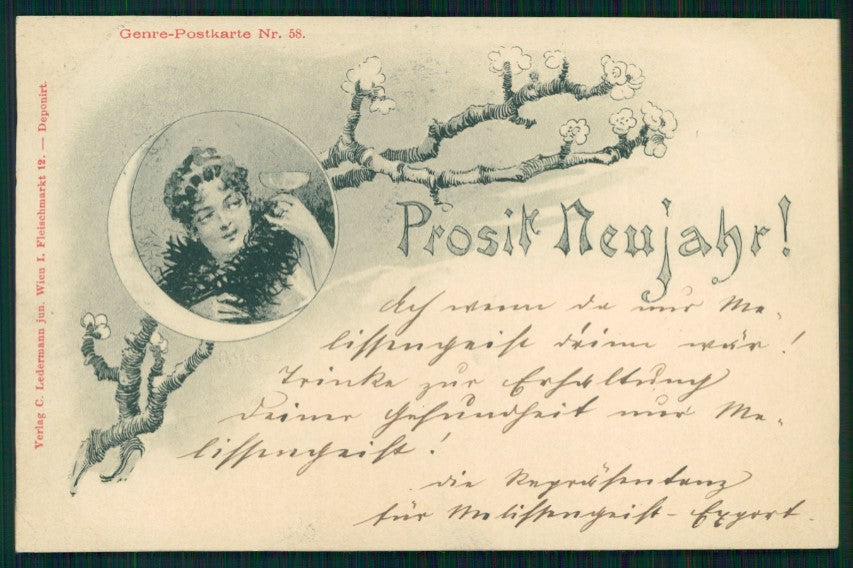 Genre-Postkarte Nr. 58.
Verlag C. Ledermann jun. Wien I. Fleischmarkt 12. — Deponirt.
Prosit Neujahr!
Ach wenn da nur Me-
lissengeist drinn wär!
Trinke zur Erhaltung
Deiner Gesundheit nur Me-
lissengeist!
die Repräsentanz
für Melissengeist-Export.